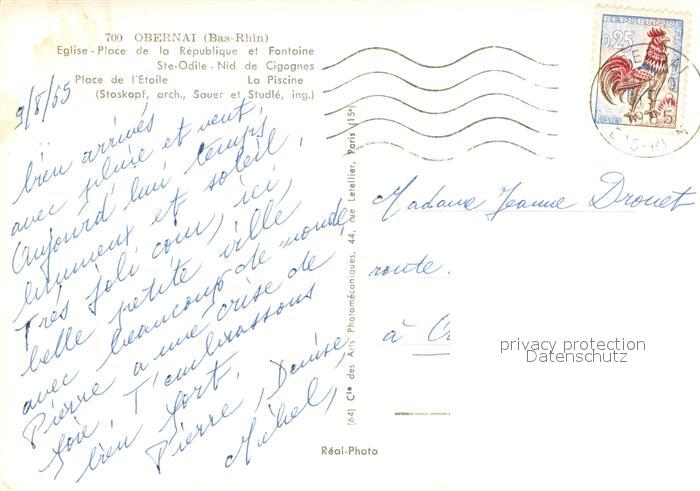 700 OBERNAI (Bas-Rhin)
Eglise - Place de la République et Fontaine
Ste-Odile - Nid de Cigognes
Place de l'Etoile La Piscine
(Stoskopf, arch., Sauer et Studlé, ing.)
9/8/65
bien arrivés
avec pluie et vent,
Aujourd'hui temps
lumineux et soleil.
Très joli coin, ici,
belle petite ville
avec beaucoup de monde,
Pierre a une crise de
foie, T'embrassons
bien fort.
Pierre, Denise,
Michel,
(64) Cie des Arts Photomécaniques, 44, rue Letellier, Paris (15e)
Réal-Photo
REPUBLIQUE
0,25
Madame Jeanne Drouet
route.
à
privacy protection
Datenschutz